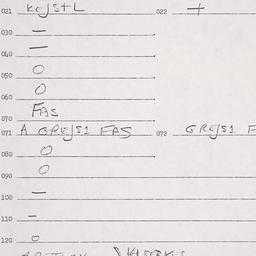 021 KGJS+L 022 +
030 —
040 —
050 O
060 O
070 FAS
071 A GREJS1 FAS 072 GREJS1 F
080 O
090 O
100 —
110 —
120 O